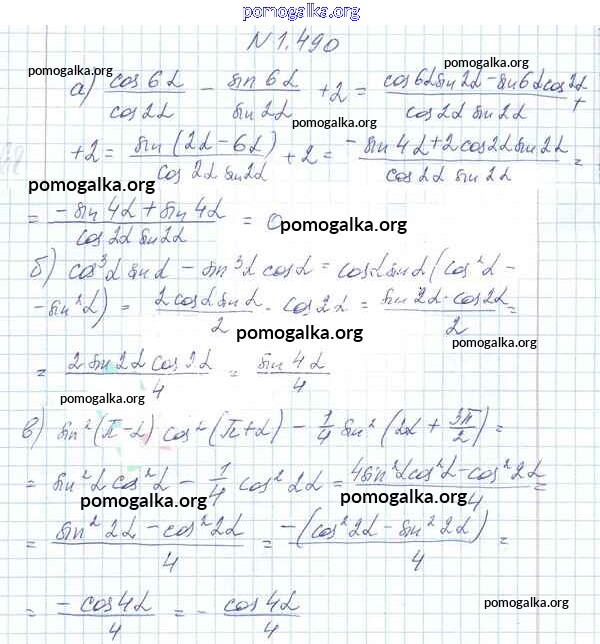 pomogalka.org
N 1.490
pomogalka.org pomogalka.org
а) cos6α/cos2α - sin6α/sin2α + 2 = (cos6α sin2α - sin6α cos2α)/(cos2α sin2α) +
pomogalka.org
+2 = sin(2α-6α)/(cos2α sin2α) + 2 = (-sin4α + 2cos2α sin2α)/(cos2α sin2α) =
pomogalka.org pomogalka.org
= (-sin4α + sin4α)/(cos2α sin2α) = 0
pomogalka.org
б) cos³α sinα - sin³α cosα = cosα sinα (cos²α -
- sin²α) = (2cosα sinα)/2 · cos2α = (sin2α · cos2α)/2 =
pomogalka.org
pomogalka.org
= (2 sin2α cos2α)/4 = sin4α/4
pomogalka.org pomogalka.org
в) sin²(π-α) cos²(π+α) - 1/4 sin²(2α + 3π/2) =
= sin²α cos²α - 1/4 cos²2α = (4sin²α cos²α - cos²2α)/4 =
pomogalka.org pomogalka.org
= (sin²2α - cos²2α)/4 = -(cos²2α - sin²2α)/4 =
= -cos4α/4 = - cos4α/4
pomogalka.org